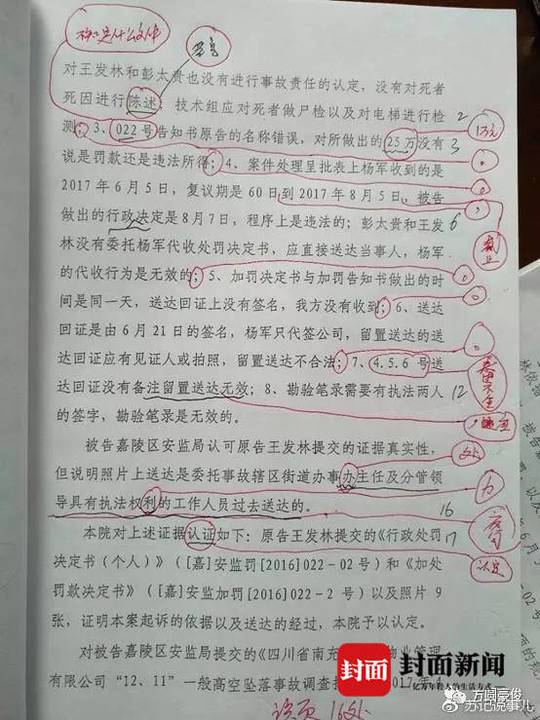 核定什么文件
对王发林和彭太贵也没有进行事故责任的认定，没有对死者
死因进行陈述 技术组应对死者做尸检以及对电梯进行检
测；3、022号告知书原告的名称错误，对所做出的25万没有
说是罚款还是违法所得；4、案件处理呈批表上杨军收到的是
2017年6月5日，复议期是60日到2017年8月5日。被告
做出的行政决定是8月7日，程序上是违法的；彭太贵和王发
林没有委托杨军代收处罚决定书，应直接送达当事人，杨军
的代收行为是无效的；5、加罚决定书与加罚告知书做出的时
间是同一天，送达回证上没有签名，我方没有收到；6、送达
回证是由6月21日的签名，杨军只代签公司，留置送达的送
达回证应有见证人或拍照，留置送达不合法；7、4.5.6号送
达回证没有备注留置送达无效；8、勘验笔录需要有执法两人
的签字，勘验笔录是无效的。
被告嘉陵区安监局认可原告王发林提交的证据真实性，
但说明照片上送达是委托事故辖区街道办事办主任及分管领
导具有执法权利的工作人员过去送达的。
本院对上述证据认证如下：原告王发林提交的《行政处罚
决定书（个人）》（［嘉］安监罚[2016]022－02号）和《加处
罚款决定书》（［嘉］安监加罚[2016]022－2号）以及照片9
张，证明本案起诉的依据以及送达的经过，本院予以认定。
对被告嘉陵区安监局提交的《四川省南充 物业管理
有限公司“12、11”一般高空坠落事故调查
2
3
万元
6
12
16
17
认定
该页16处
封面 封面新闻
亿万年轻人的生活方式
方圆豪俊
苏记说事儿